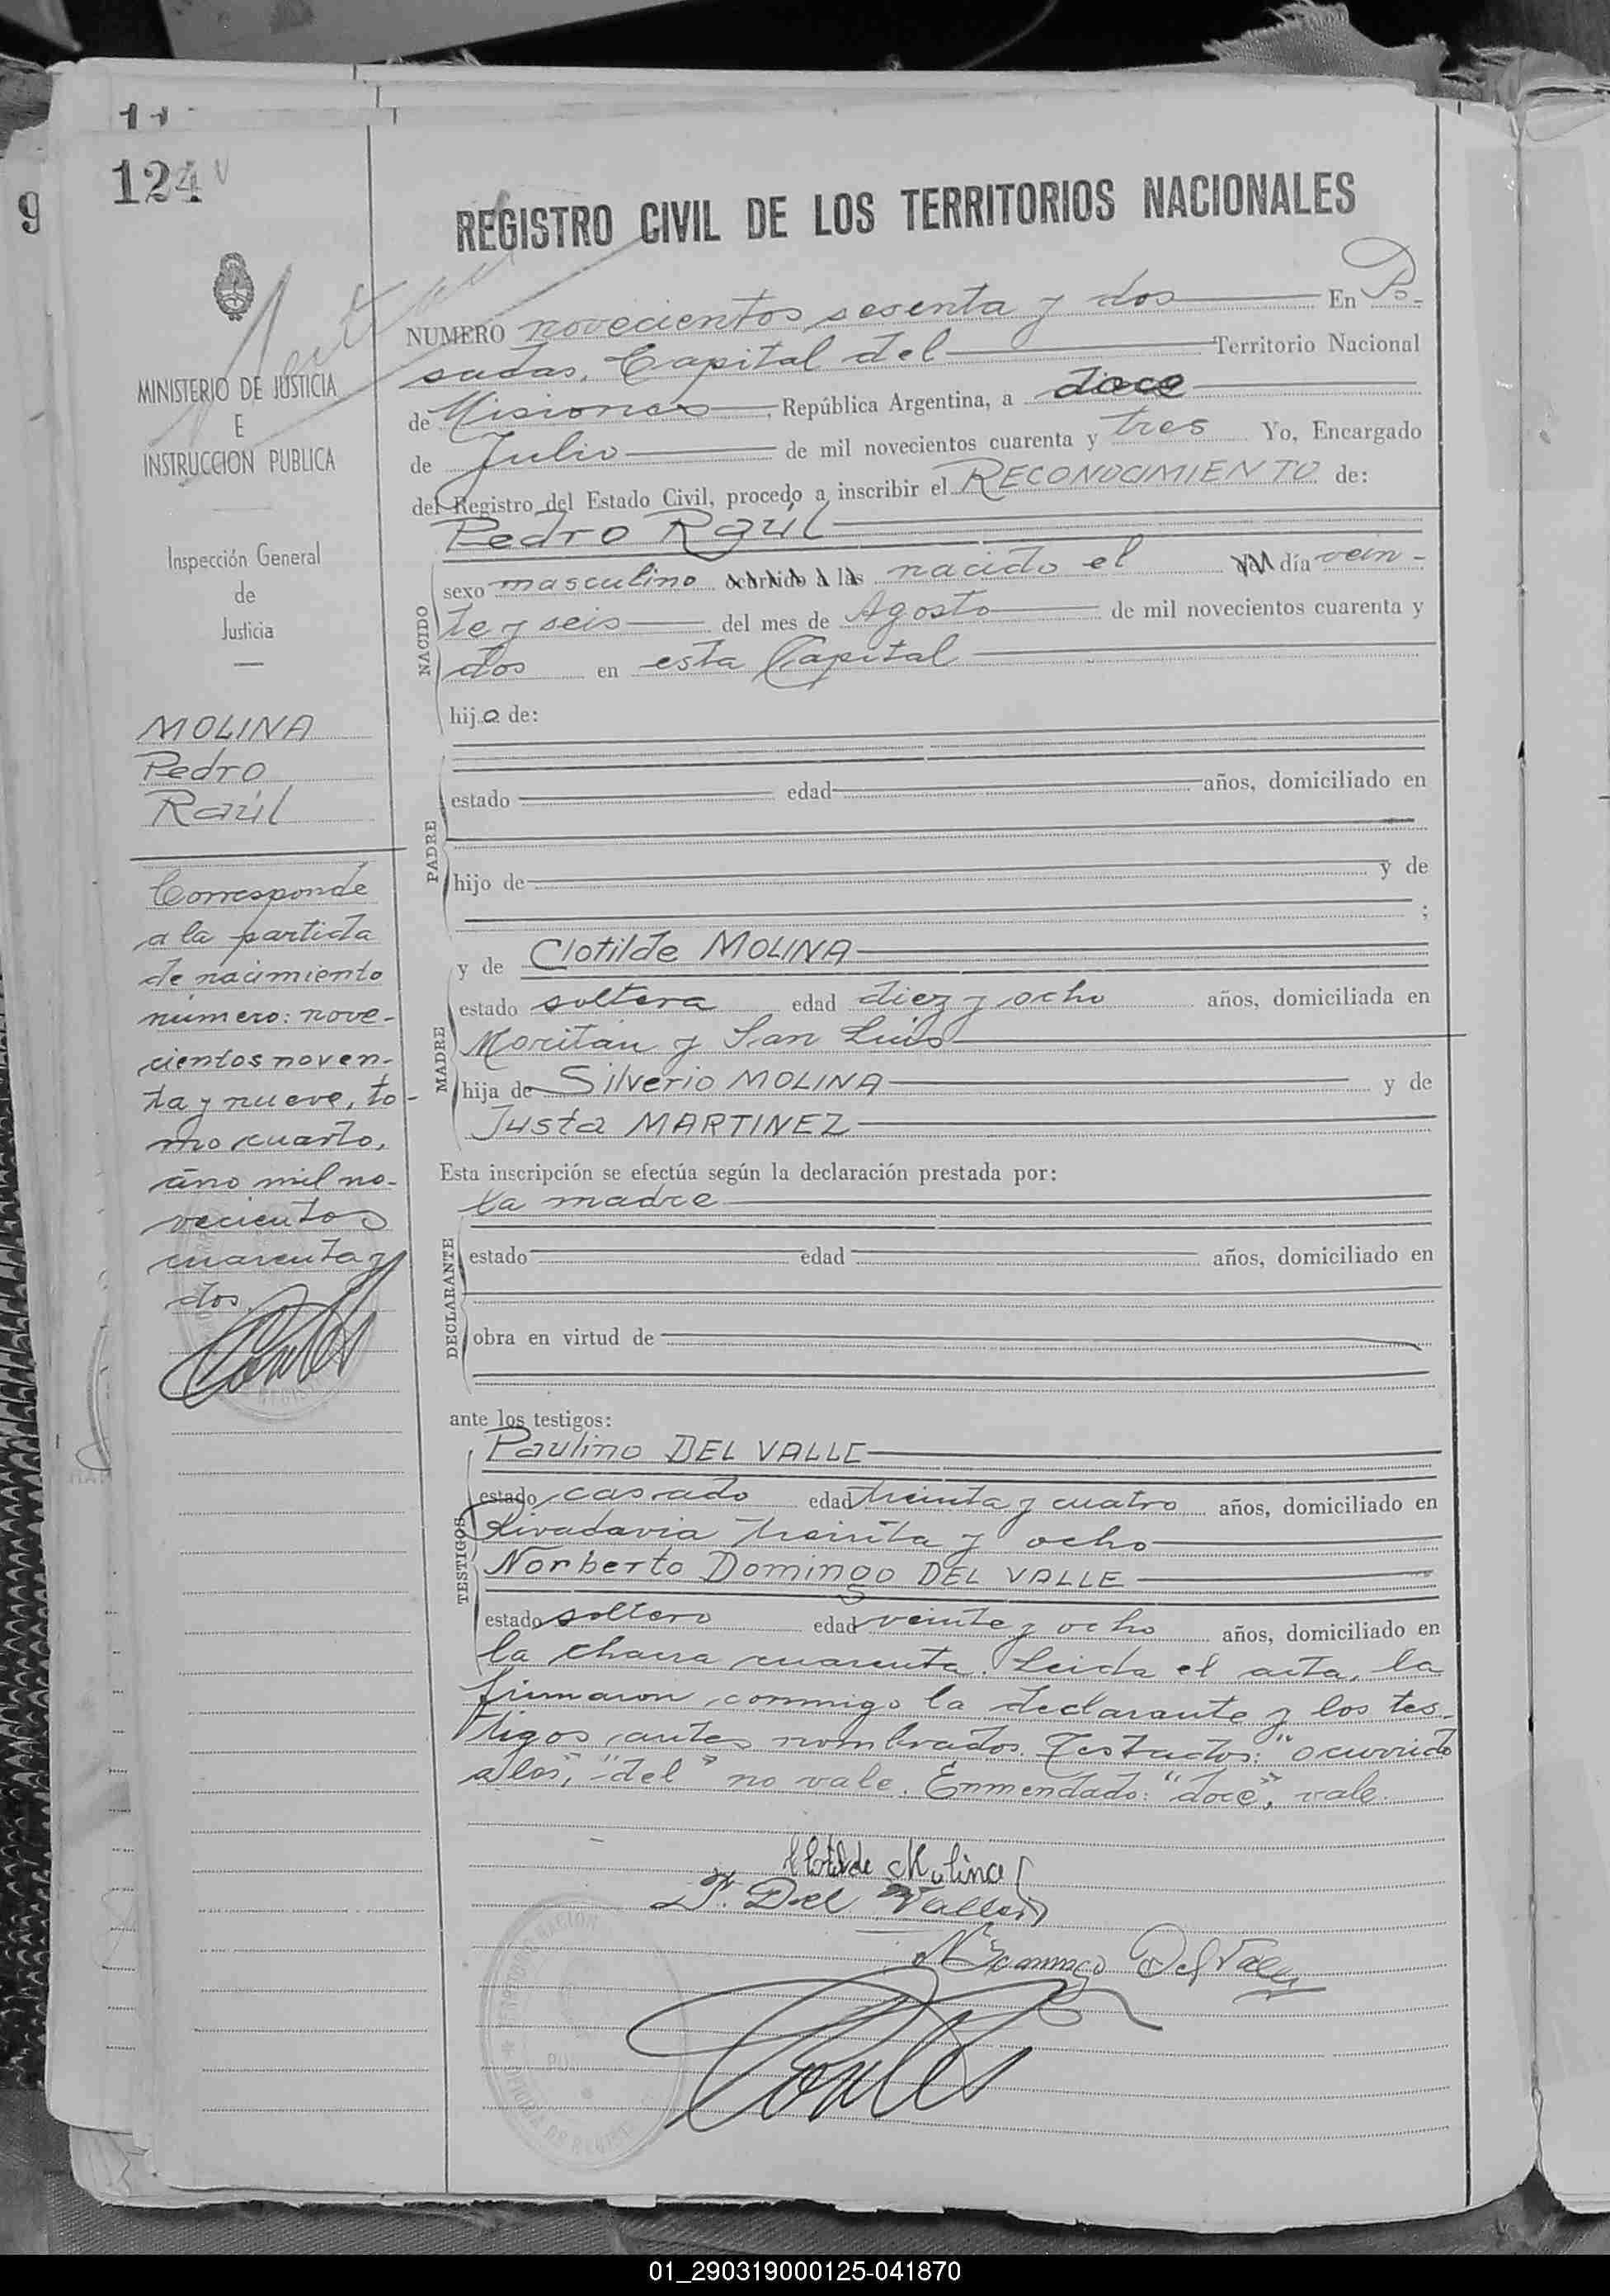 124
REGISTRO CIVIL DE LOS TERRITORIOS NACIONALES
MINISTERIO DE JUSTICIA
E
INSTRUCCION PUBLICA
Inspección General
de
Justicia
MOLINA
Pedro
Raúl
Corresponde
a la partida
de nacimiento
número: nove-
cientos noven-
ta y nueve, to-
mo cuarto,
año mil no-
vecientos
cuarenta y
dos
NUMERO novecientos sesenta y dos En Po-
sadas, Capital del Territorio Nacional
de Misiones, República Argentina, a doce
de Julio de mil novecientos cuarenta y tres Yo, Encargado
del Registro del Estado Civil, procedo a inscribir el RECONOCIMIENTO de:
Pedro Raúl
NACIDO
sexo masculino ocurrido a las nacido el del día vein-
te y seis del mes de Agosto de mil novecientos cuarenta y
dos en esta Capital
hijo de:
PADRE
estado edad años, domiciliado en
hijo de y de
;
MADRE
y de Clotilde MOLINA
estado soltera edad diez y ocho años, domiciliada en
Moritán y San Luis
hija de Silverio MOLINA y de
Justa MARTINEZ
Esta inscripción se efectúa según la declaración prestada por:
la madre
DECLARANTE
estado edad años, domiciliado en
obra en virtud de
ante los testigos:
TESTIGOS
Paulino DEL VALLE
estado casado edad treinta y cuatro años, domiciliado en
Rivadavia treinta y ocho
Norberto Domingo DEL VALLE
estado soltero edad veinte y ocho años, domiciliado en
la chacra cuarenta. Leida el acta, la
firmaron conmigo la declarante y los tes-
tigos antes nombrados. Testados: "ocurrido
a las", "del" no vale. Enmendado: "doce", vale.
Clotilde Molina
P. Del Valle
N Domingo Del Valle
01_290319000125-041870